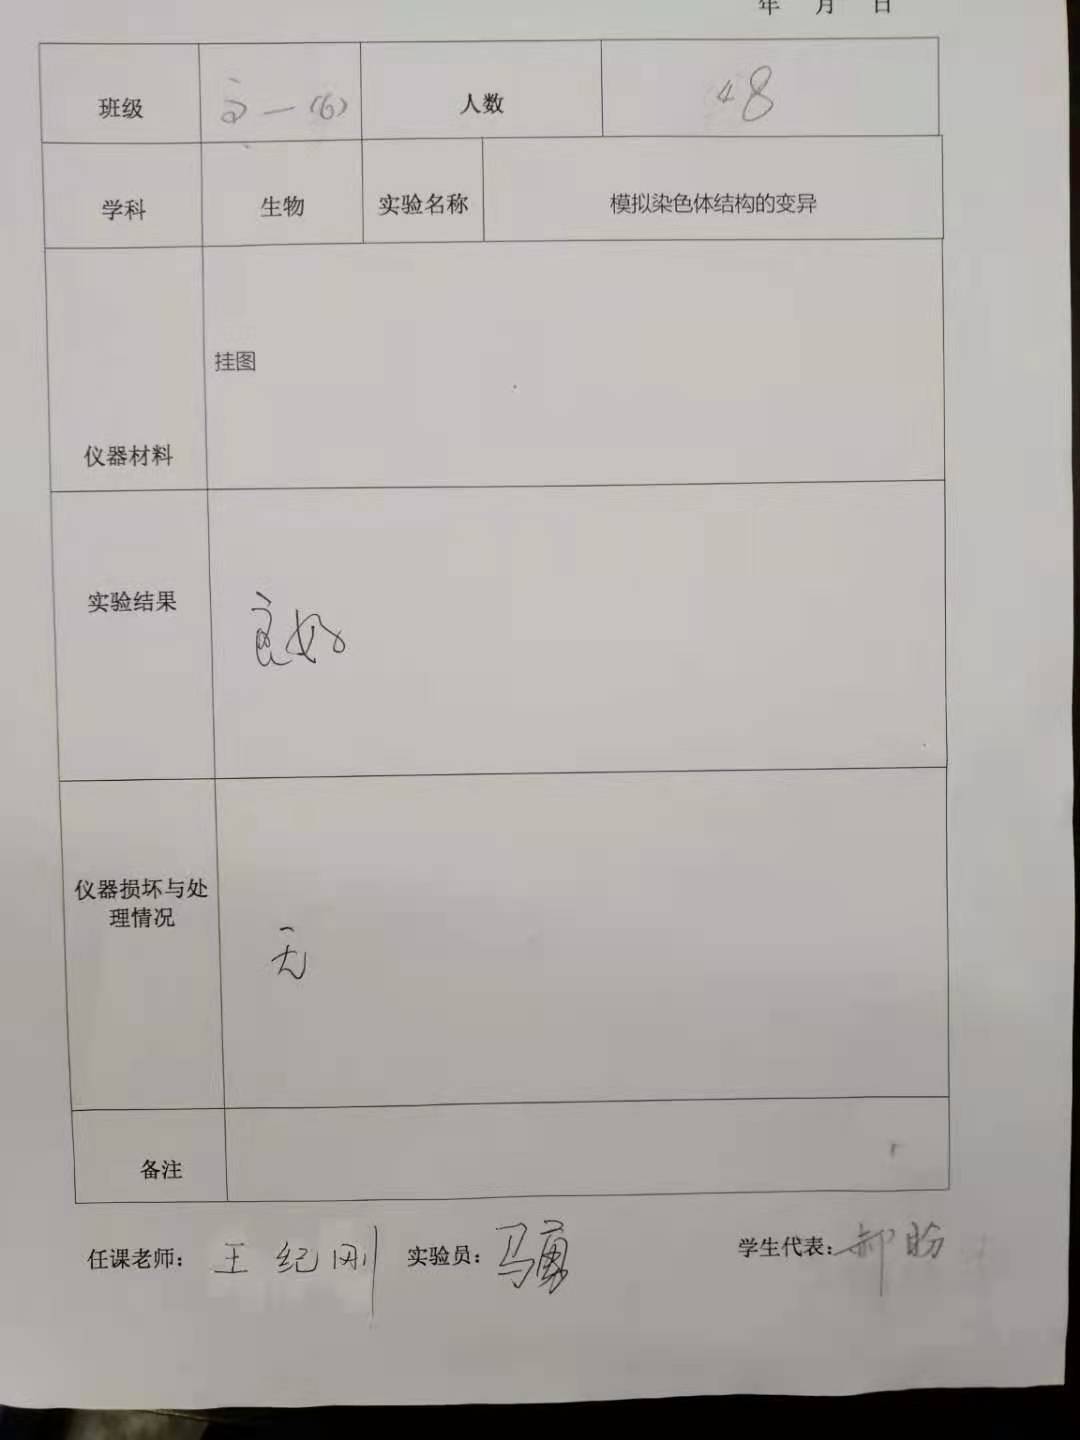 年 月 日
班级 高一(6) 人数 48
学科 生物 实验名称 模拟染色体结构的变异
挂图
仪器材料
实验结果 良好
仪器损坏与处
理情况
无
备注
任课老师: 王纪刚 实验员: 马勇 学生代表: 郝盼